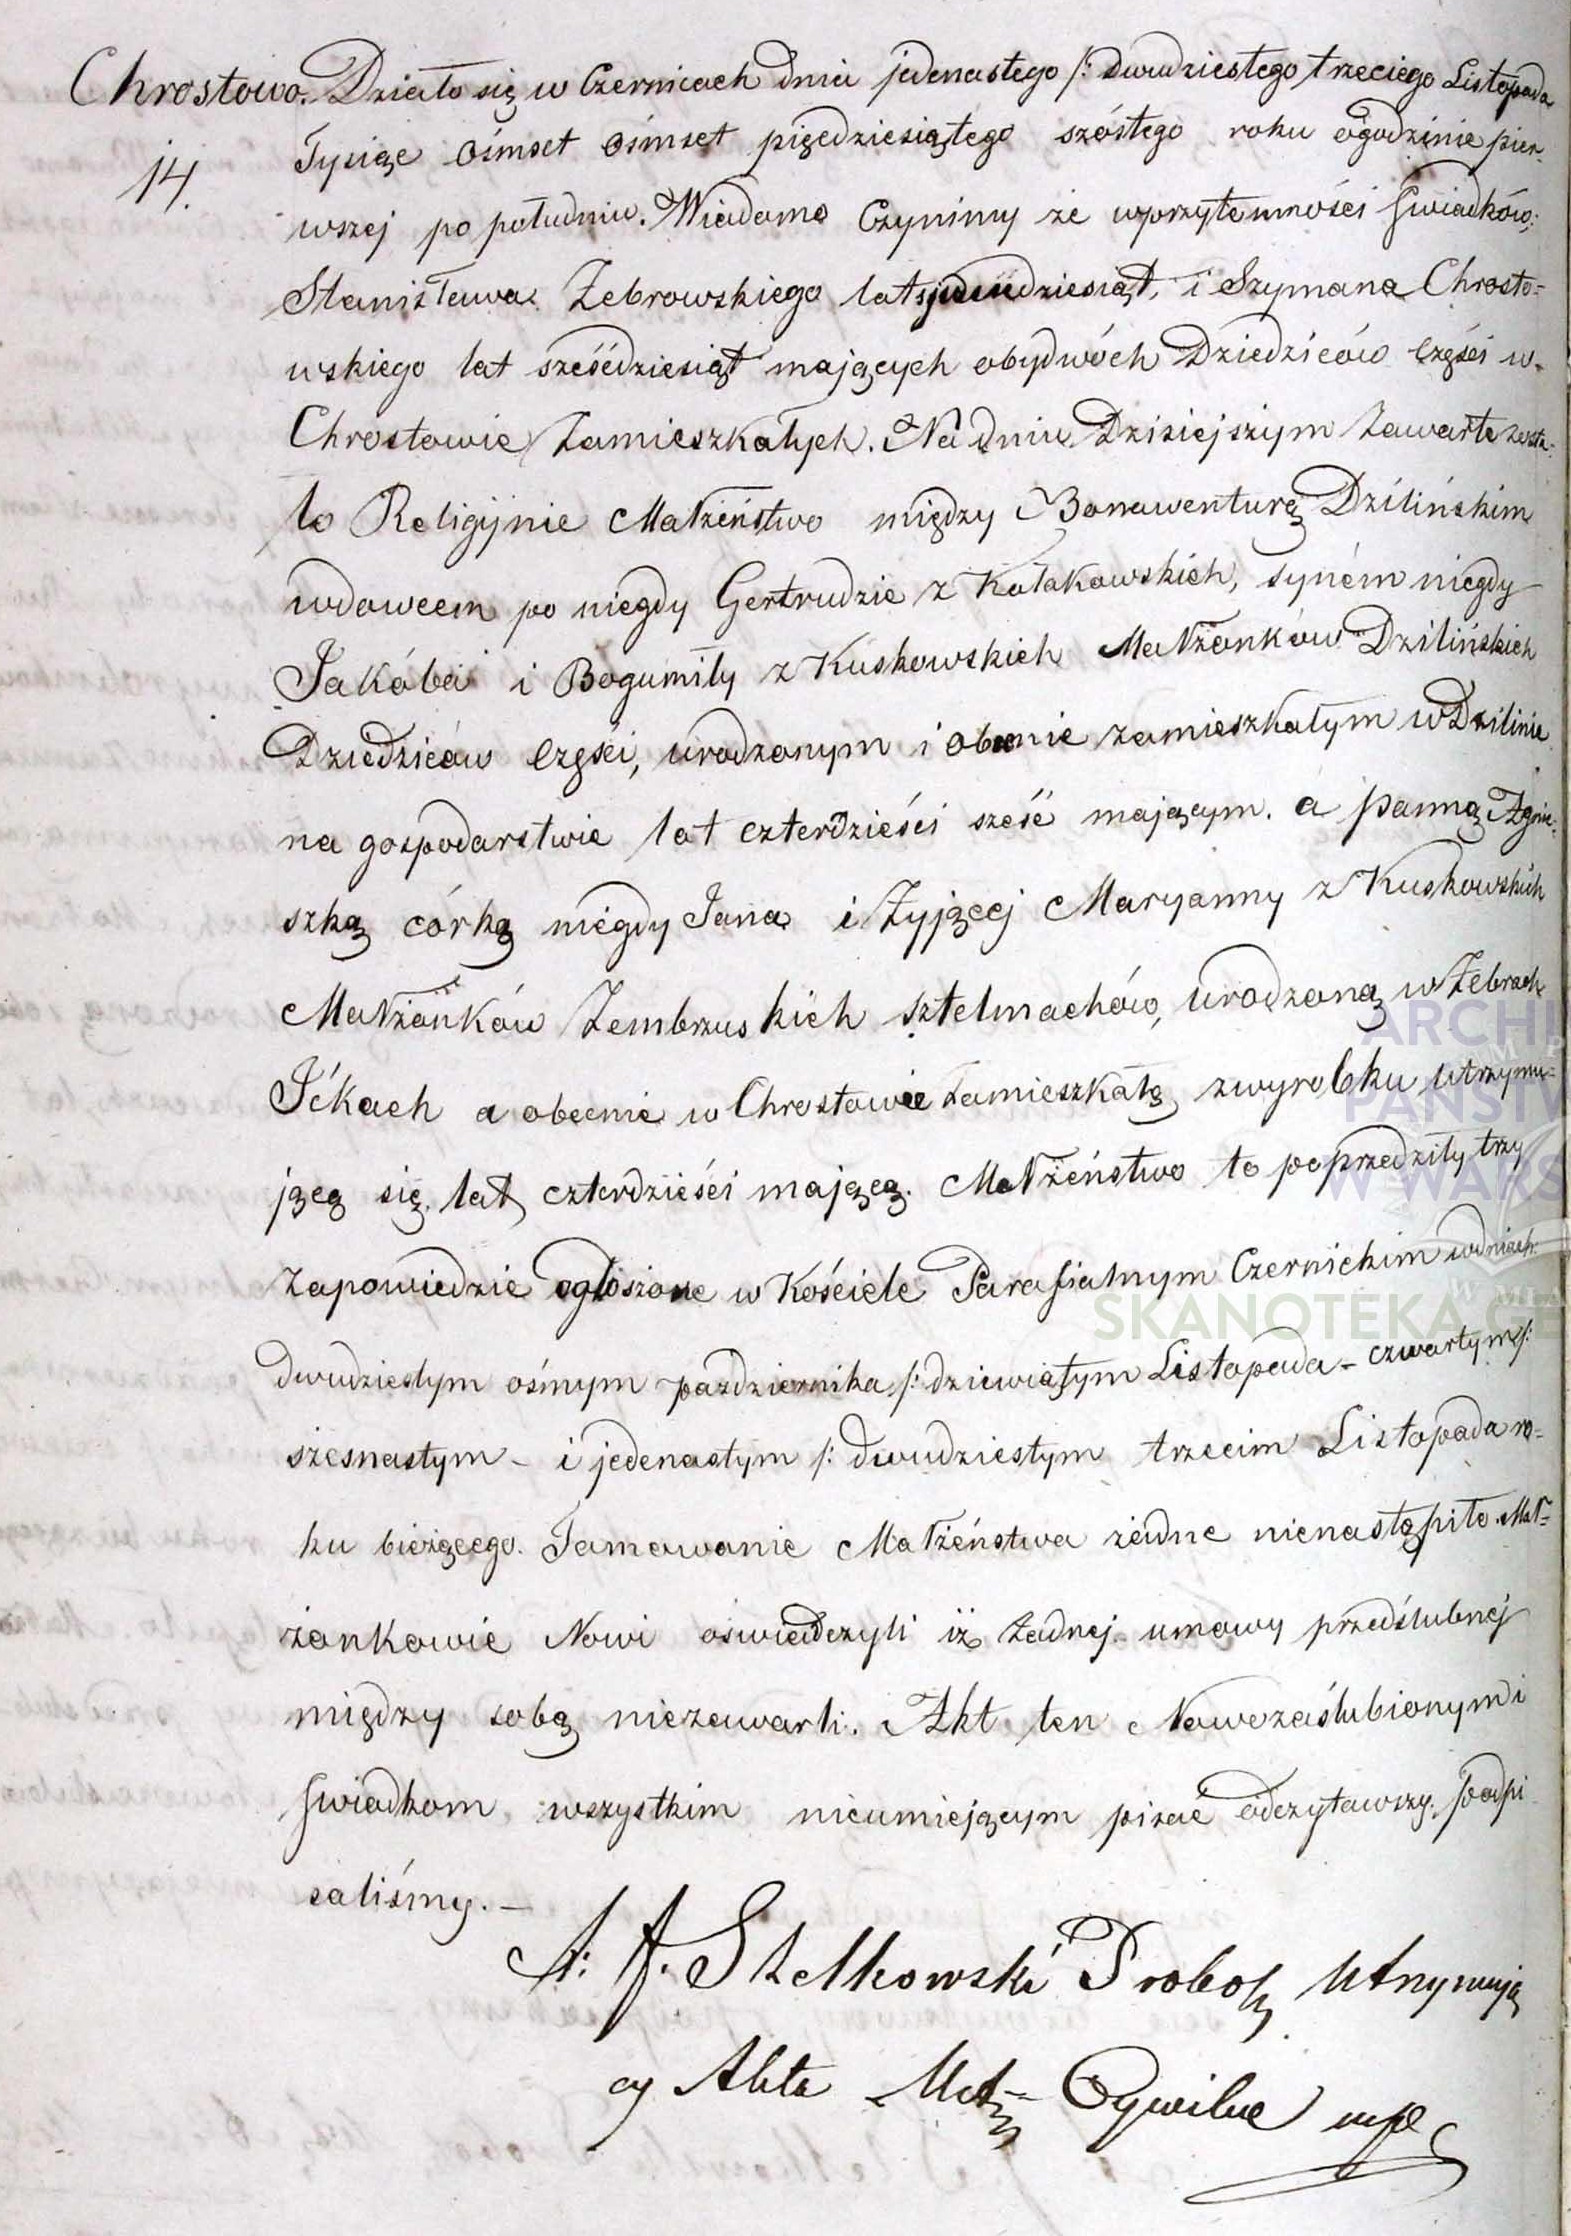 Chrostowo. Działo się w Czernicach dnia jedenastego /: dwudziestego trzeciego Listopada
14. Tysiąc Ośmset Ośmset pięćdziesiątego szóstego roku o godzinie pier-
wszej po południu. Wiadomo Czynimy że w przytomności Swiadków:
Stanisława Zebrowskiego lat i Szymana Chrosto=
wskiego lat sześćdziesiąt mających obydwóch Dziedziców części w-
Chrostowie Zamieszkałych. Na dniu Dzisiejszym Zawarte zosta=
ło Religijnie Małżeństwo między Bonawenturą Dzilińskim
wdowcem po niegdy Gertrudzie z Kołakowskich, synem niegdy
Jakóba i Bogumiły z Kuskowskich Małżonków Dzilińskich
Dziedziców części, urodzonym i obecnie zamieszkałym w Dzilinie
na gospodarstwie lat czterdzieści sześć mającym. a panną Agnie=
szką córką niegdy Jana i Żyjącej Maryanny z Kuskowskich
Małżonków Zembrzuskich sztelmachów, urodzoną w Żebrach
Ićkach a obecnie w Chrostowie Zamieszkałą z wyrobku utrzymu=
jącą się lat czterdzieści mającą. Małżeństwo to poprzedziły trzy
Zapowiedzie ogłoszone w Kościele Parafialnym Czernickim w dniach
dwudziestym ośmym października /: dziewiątym Listopada - czwartym /:
szesnastym - i jedenastym /: dwudziestym trzecim Listopada ro=
ku bieżącego. Tamowanie Małżeństwa żadne nienastąpiło. Mał=
żonkowie Nowi oświadczyli iż Żadnej umowy przedślubnej
między sobą niezawarli. Akt ten Nowozaślubionym i
Swiadkom wszystkim nieumiejącym pisać odczytawszy, podpi
saliśmy. -
Stelkowski Probosz Utrzymują
cy Akta Małż= Cywilne mp
ARCHI
PAŃSTW
W WARS
SKANOTEKA GE